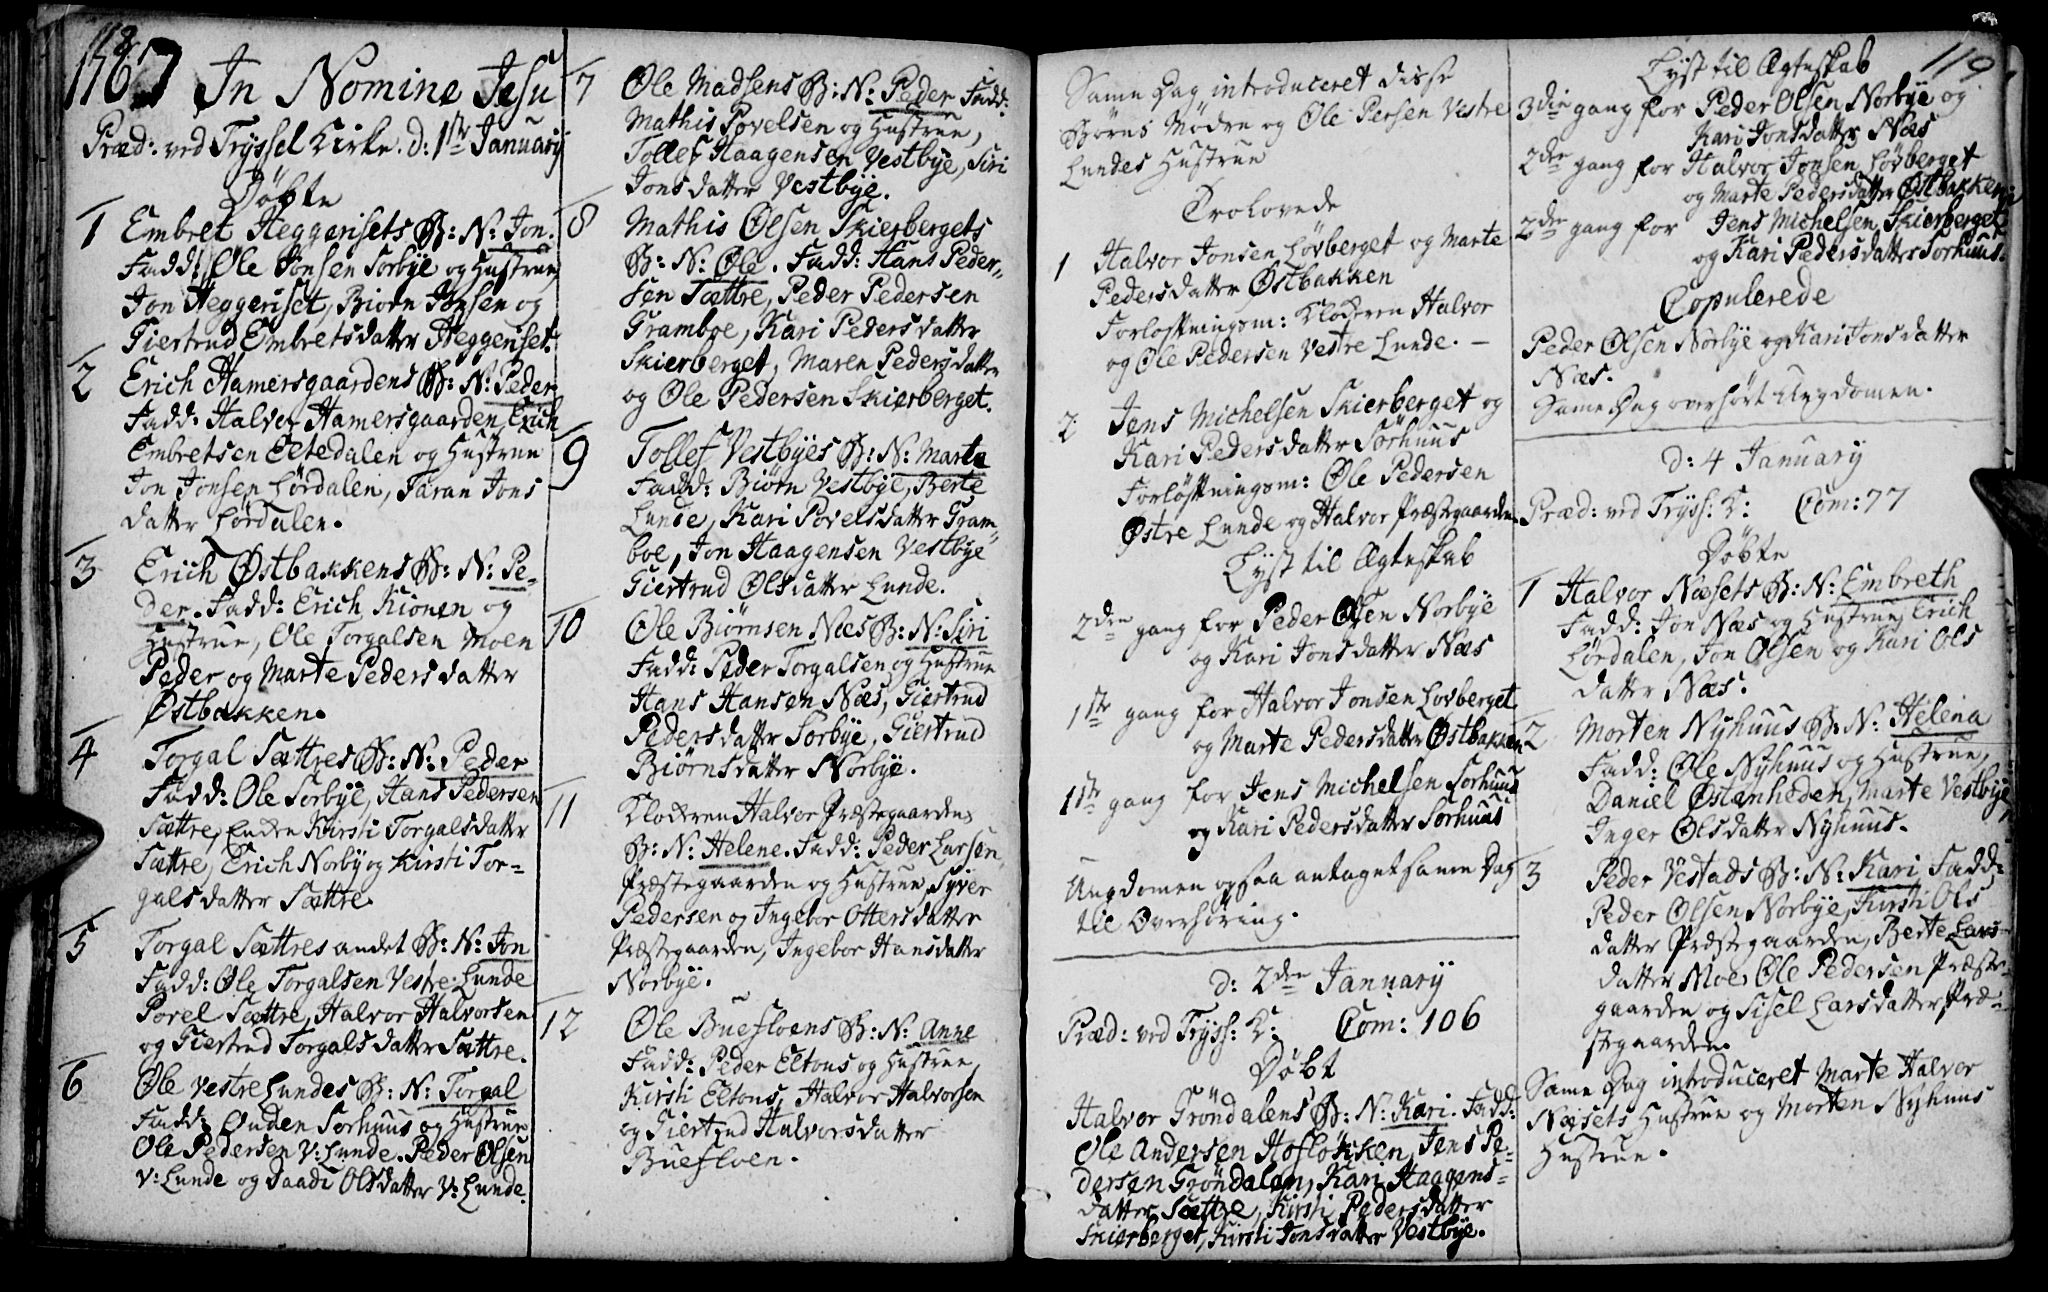 118
1767 In Nomine Jesu
Præd: ved Tryssel Kirke. d: 1ste January
Døbte
1 Embret Heggerisets B: N: Jon.
Fadd: Ole Jonsen Sorbÿe og Hustrue,
Jon Heggeriset, Biørn Jonsen og
Giertrud Embretsdatter Heggeriset
2 Erich Hamersgaardens B: N: Peder
Fadd: Halvor Hamersgaarden, Erich
Embretsen Eltedalen og Hustrue
Jon Jonsen Lørdalen, Taran Jons
datter Lørdalen.
3 Erich Østbakkens B: N: Pe-
der. Fadd: Erich Kiønen og
Hustrue, Ole Torgalsen Moen
Peder og Marte Pedersdatter
Østbakken.
4 Torgal Sættres B: N: Peder
Fadd: Ole Sorbÿe, Hans Pedersen
Sættre, Kirsti Torgalsdatter
Sættre, Erich Norby og Kirsti Tor-
galsdatter Sættre.
5 Torgal Sættres andet B: N: Jon
Fadd: Ole Torgalsen Vestre Lunde
Povel Sættre, Halvor Halvorsen
og Giertrud Torgalsdatter Sættre.
6 Ole Vestre Lundes B: N: Torgal
Fadd: Ouden Sørhuus og Hustrue
Ole Pedersen V: Lunde. Peder Olsen
V: Lunde og Olsdatter V: Lunde.
7 Ole Madsens B: N: Peder Fadd:
Mathis Povelsen og Hustrue,
Tollef Haagensen Vestbÿe, Siri
Jonsdatter Vestbÿe.
8 Mathis Olsen Skierbergets
B: N: Ole. Fadd: Hans Peder-
sen Sættre, Peder Pedersen
Gramboe, Kari Pedersdatter
Skierberget, Maren Pedersdatter
og Ole Pedersen Skierberget.
9 Tollef Vestbÿes B: N: Marte
Fadd: Biørn Vestbÿe, Berte
Lunde, Kari Povelsdatter Gram-
boe, Jon Haagensen Vestbÿe
Giertrud Olsdatter Lunde.
10 Ole Biørnsen Næs B: N: Siri
Fadd: Peder Torgalsen og Hustrue
Hans Hansen Næs, Giertrud
Pedersdatter Sorbÿe, Giertrud
Biørnsdatter Norbÿe.
11 Klokeren Halvor Præstegaardens
B: N: Helene. Fadd: Peder Larsen
Præstegaarden og Hustrue, Syver
Pedersen og Ingebor Ottersdatter
Præstegaarden, Ingebor Hansdatter
Norbÿe.
12 Ole Buefloens B: N: Anne
Fadd: Peder Eltons og Hustrue,
Kirsti Eltons, Halvor Halvorsen
og Giertrud Halvorsdatter
Buefloen.
119
Same Dag introduceret disse
Børns Mødre og Ole Persen Vestre
Lundes Hustrue
Trolovede
1 Halvor Jonsen Løvberget og Marte
Pedersdatter Østbakken
Forløftningsm: Klokeren Halvor
og Ole Pedersen Vestre Lunde. —
2 Jens Michelsen Skierberget og
Kari Pedersdatter Sørhuus
Forløftningsm: Ole Pedersen
Østre Lunde og Halvor Præstegaarden
Lyst til Ægteskab
2den gang for Peder Olsen Norbÿe
og Kari Jonsdatter Næs
1ste gang for Halvor Jonsen Lovberget
og Marte Pedersdatter Østbakken
1ste gang for Jens Michelsen Sorhuus
og Kari Pedersdatter Sorhuus
Ungdomen ogsaa antaget same Dag
til Overhøring.
d: 2den January
Præd: ved Tryss: K: Com: 106
Døbt
Halvor Grøndalens B: N: Kari. Fadd:
Ole Andersen Hofløkken, Jens Pe-
dersen Grøndalen, Kari Haagens-
datter Sættre, Kirsti Pedersdatter
Skierberget, Kirsti Jonsdatter Vestbÿe.
Lyst til Ægteskab
3die gang for Peder Olsen Norbÿe og
Kari Jonsdatter Næs
2den gang for Halvor Jonsen Løvberget
og Marte Pedersdatter Østbakken
2den gang for Jens Michelsen Skierberget
og Kari Pedersdatter Sorhuus.
Copulerede
Peder Olsen Norbÿe og Kari Jonsdatter
Næs.
Same Dag overhørt Ungdomen.
d: 4 January
Præd: ved Tryss: K: Com: 77
Døbte
1 Halvor Næsets B: N: Embreth
Fadd: Jon Næs og Hustrue, Erich
Lørdalen, Jon Olsen og Kari Ols
datter Næs.
2 Morten Nyhuus B: N: Helena
Fadd: Ole Nyhuus og Hustrue,
Daniel Østenheden, Marte Vestbÿe,
Inger Olsdatter Nyhuus.
3 Peder Vestads B: N: Kari Fadd:
Peder Olsen Norbÿe, Kirsti Ols
datter Præstegaarden, Berte Lars
datter Moe, Ole Pedersen Præste-
gaarden og Sisel Larsdatter Præ-
stegaarden.
Same Dag introduceret Marte Halvor
Næsets Hustrue og Morten Nyhuus
Hustrue.